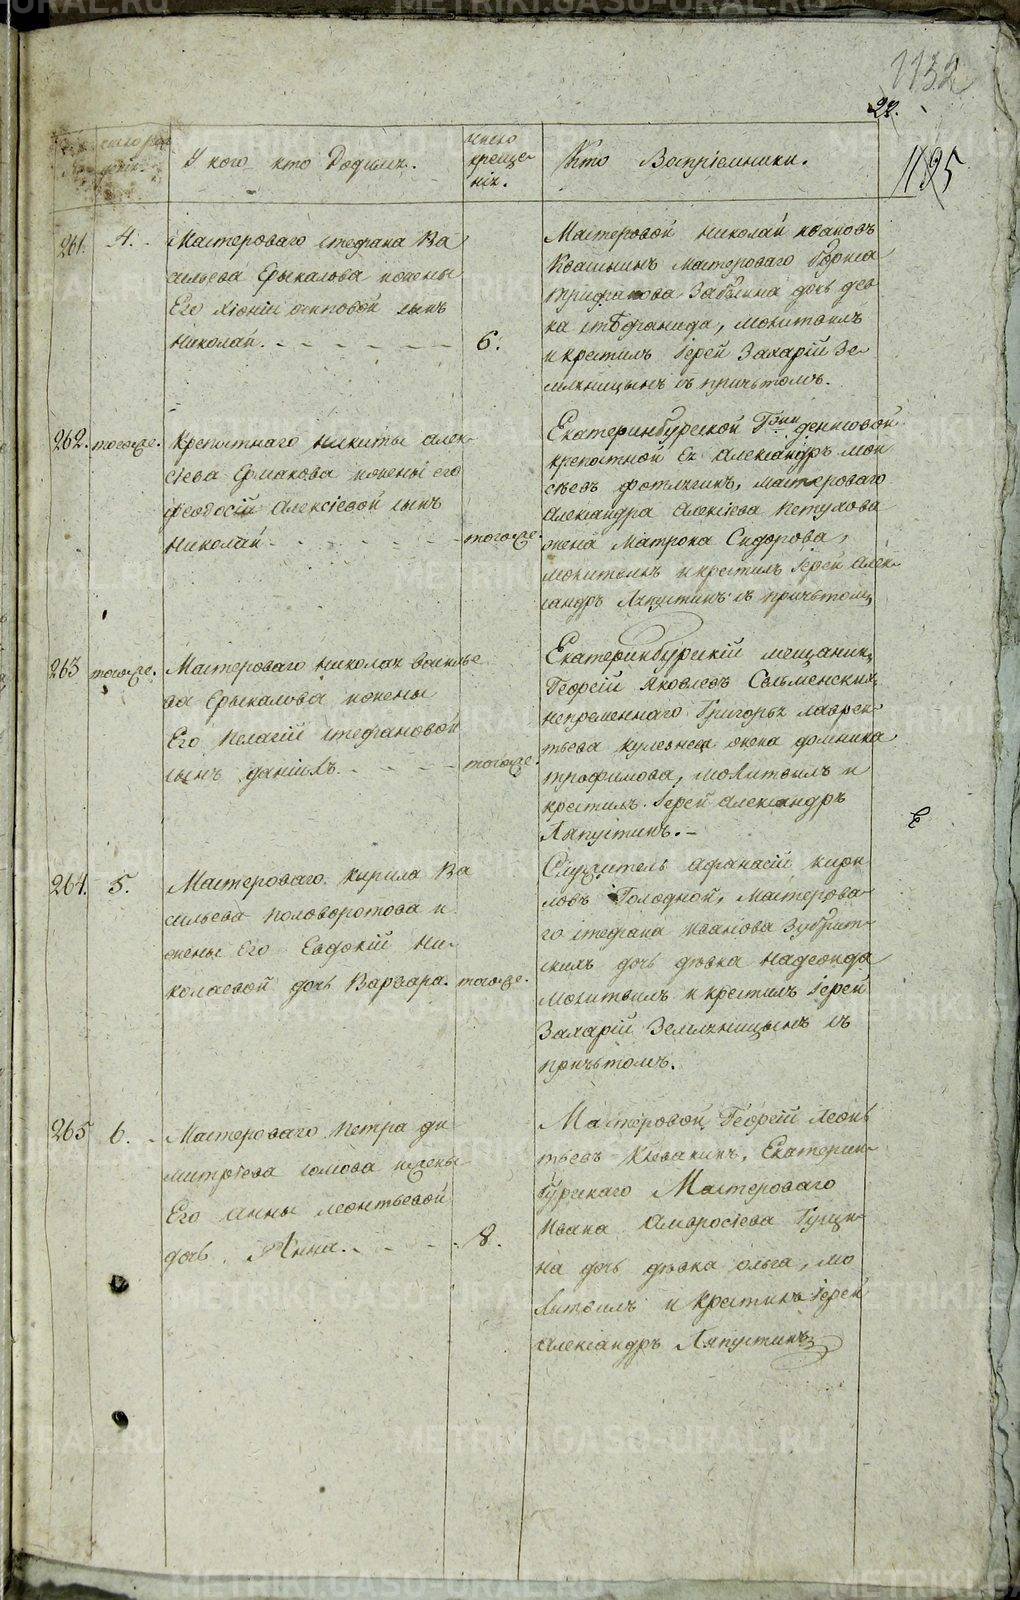 1132
22.
1195
число рож
У кого кто Родился.
число
креще-
нія.
Кто Вапріемники.
261.
4.
Мастероваго Стефана Ва
сильева Ерыкалова и жены
Его Хіоніи сынъ
Николай.
6.
Мастеровой Николай Ивановъ
Квашнинъ Мастероваго
Трифанова Забѣлина дочь дев
ка Стефанида, молитвилъ
и крестилъ Іерей Захарій Зе-
мляницынъ съ причьтомъ.
262.
тогоже.
Крепостнаго Никиты Алек-
сіева Ермакова и жены его
Феодосіи Алексіевой сынъ
Николай
тогоже.
Екатеринбургской
крепостной Ея Александръ Мои
сѣевъ мастероваго
Александра Алексіева Петухова
жена Матрона Сидорова,
молитвилъ и крестилъ Іерей Алек-
сандръ Ляпустинъ съ причьтомъ
263
тогоже.
Мастероваго Николая Василье
ва Ерыкалова и жены
Его Пелагіи Стефановой
сынъ Даніилъ.
тогоже.
Екатеринбургскій мещанинъ
Георгій Яковлевъ
непременнаго Григорья Лаврен-
тьева жена Домника
Трофимова, молитвилъ и
крестилъ Іерей Александръ
Ляпустинъ.
264.
5.
Мастероваго Кирила Ва
сильева Половоротова и
жены Его Евдокіи Ни-
колаевой дочь Варвара.
тогоже.
Служитель Афанасій Кири
ловъ Голодной, Мастерова-
го Стефана Иванова
дочь дѣвка Надежда
Молитвилъ и крестилъ Іерей
Захарій Земляницынъ съ
причьтомъ.
265
6.
Мастероваго Петра Ди
митріева Сомова и жены
Его Анны Леонтьевой
дочь Анна.
8.
Мастеровой Георгій Леонь
тьевъ Екатерин-
бургскаго Мастероваго
Ивана Амвросіева Гущи-
на дочь дѣвка Ольга, мо
литвилъ и крестилъ Іерей
Александръ Ляпустинъ